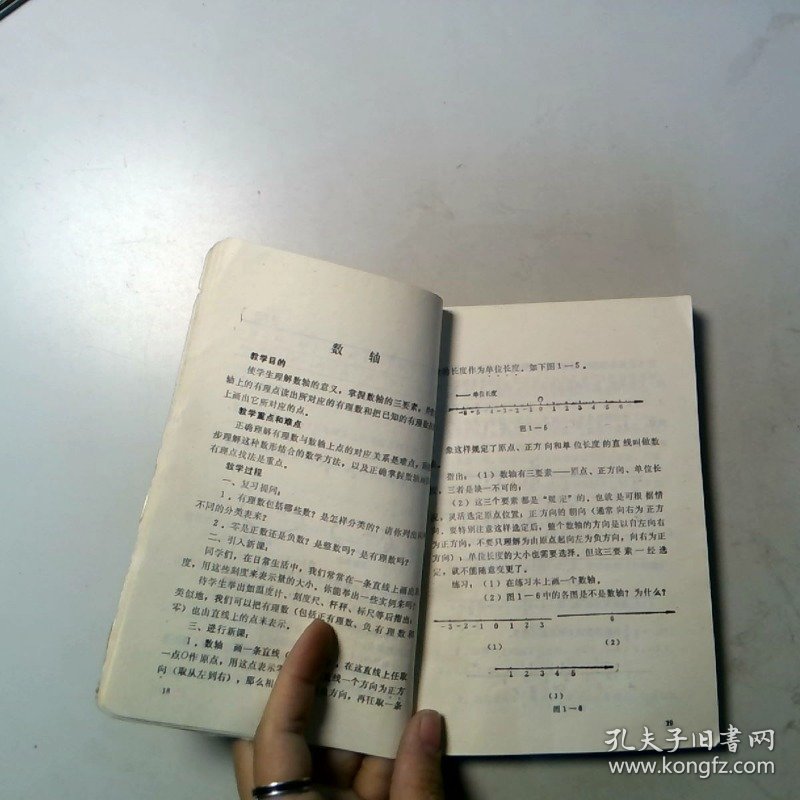 数轴
教学目的
使学生理解数轴的意义，掌握数轴的三要素，
轴上的有理点读出所对应的有理数和把已知的有理数
上画出它所对应的点。
教学重点和难点
正确理解有理数与数轴上点的对应关系是难点，
步理解这种数形结合的数学方法，以及正确掌握数轴
有理点找法是重点。
教学过程
一、复习提问：
1．有理数包括哪些数？是怎样分类的？请你列出
不同的分类表来？
2．零是正数还是负数？是整数吗？是有理数吗？
二、引入新课：
同学们，在日常生活中，我们常常在一条直线上画出
度，用这些刻度来表示量的大小。你能举出一些实例来吗？
待学生举出如温度计、刻度尺、杆秤、标尺等后指出：
类似地，我们可以把有理数（包括正有理数、负有理数和
零）也由直线上的点来表示。
三、进行新课：
1．数轴 画一条直线 在这直线上任取
一点O作原点，用这点表示 线一个方向为正方
向（取从左到右），那么相 方向，再任取一条
18
的长度作为单位长度．如下图1—5．
单位长度
-6 -5 -4 -3 -2 -1 0 1 2 3 4 5 6
图1—5
象这样规定了原点、正方向和单位长度的直线叫做数
指出：（1）数轴有三要素——原点、正方向、单位长
三者是缺一不可的；
（2）这三个要素都是“规定”的，也就是可根据情
况，灵活选定原点位置；正方向的朝向（通常向右为正方
要特别注意这样选定后，整个数轴的方向是以自左向右
为正方向，不要只理解为由原点起向左为负方向，向右为正
方向）；单位长度的大小也需要选择．但这三要素一经选
定，就不能随意变更了．
练习：（1）在练习本上画一个数轴．
（2）图1—6中的各图是不是数轴？为什么？
-3 -2 -1 0 1 2 3
0
（1） （2）
1 2 3 4 5
（3）
图1—6
孔夫子旧书网
www.kongfz.com